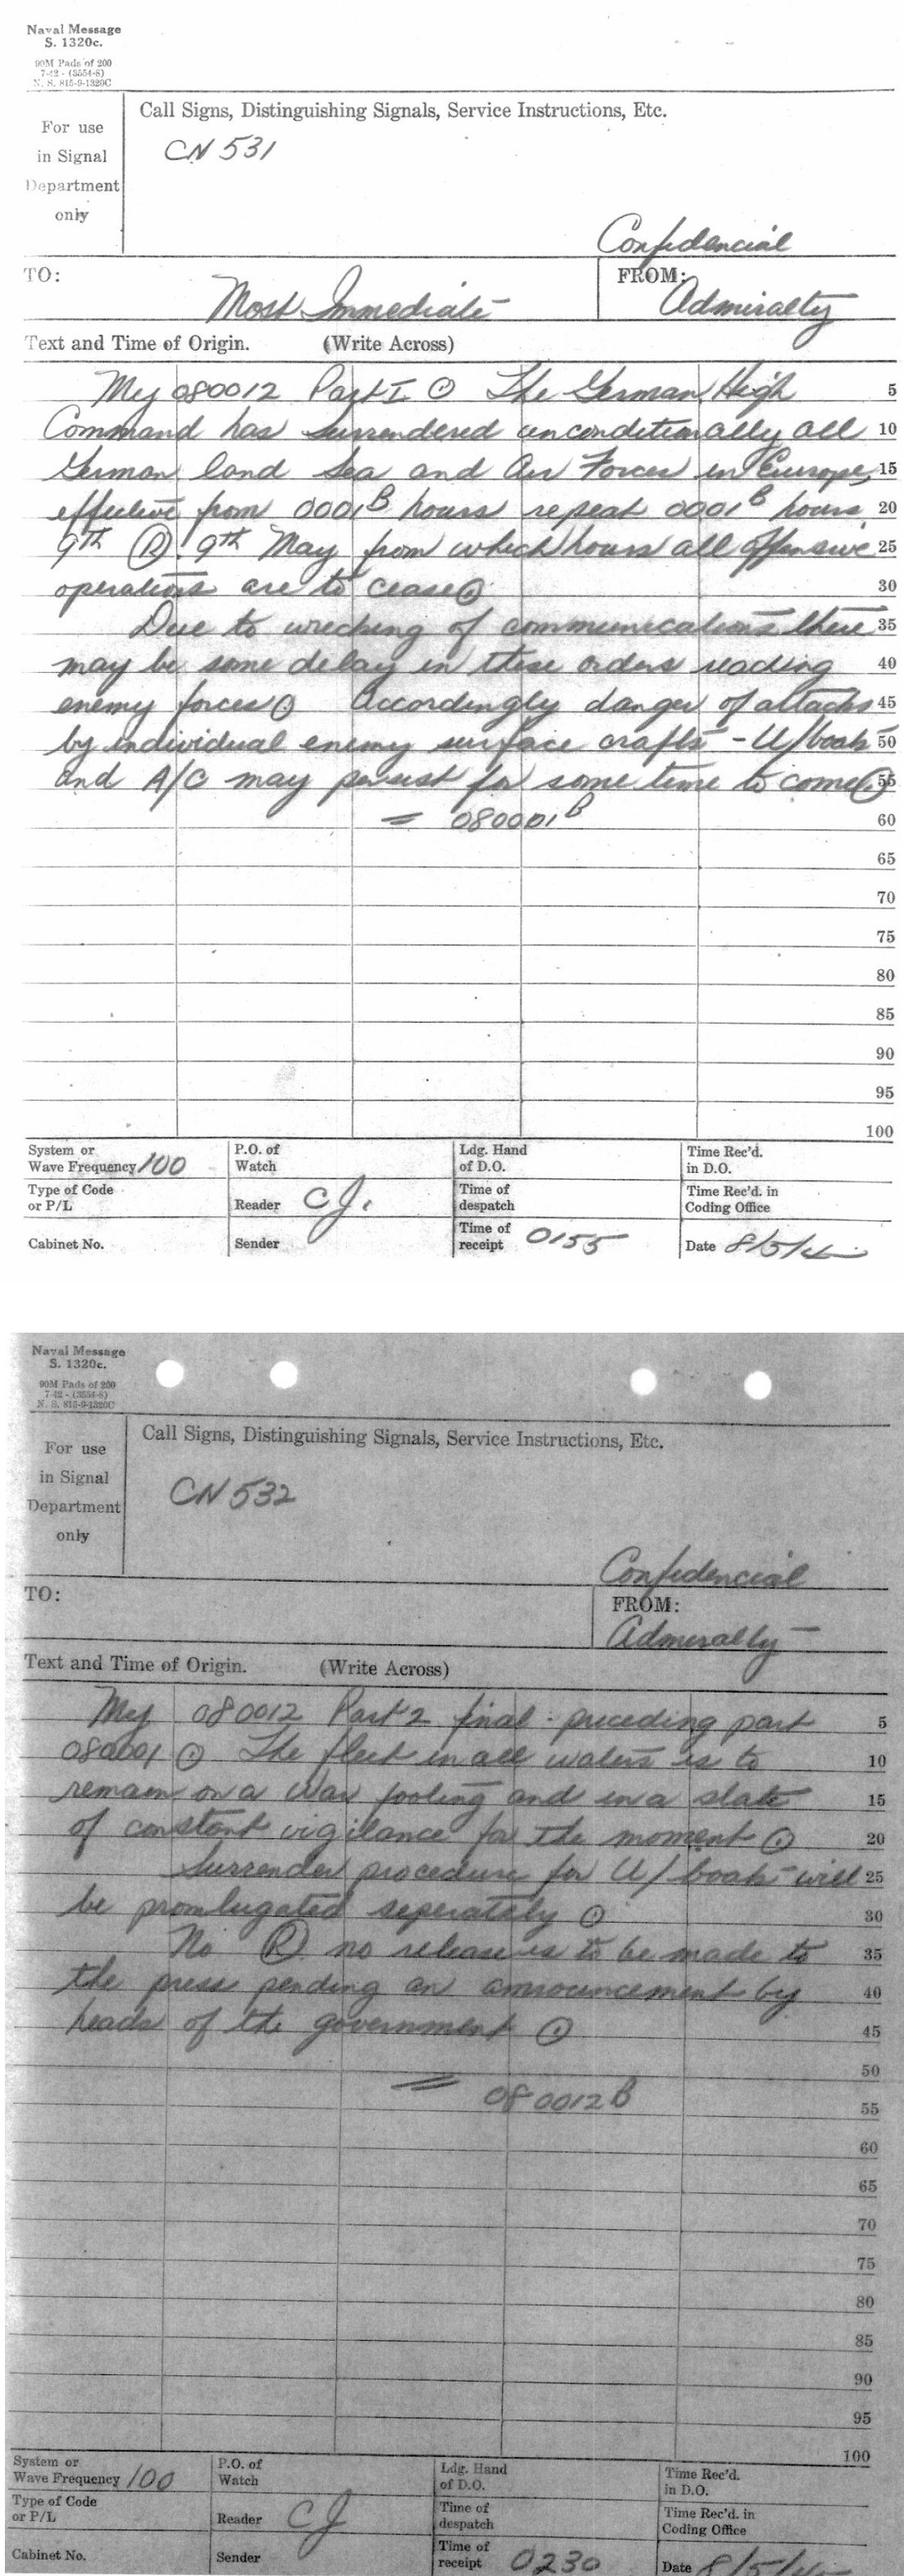 Naval Message
S. 1320c.
90M Pads of 200
7-42 - (3554-8)
N. S. 815-9-1320C
For use
in Signal
Department
only
Call Signs, Distinguishing Signals, Service Instructions, Etc.
CN 531
Confidencial
TO:
Most Immediate
FROM:
Admiralty
Text and Time of Origin. (Write Across)
My 080012 Part I ⊙ The German High 5
Command has surrendered unconditionally all 10
German land Sea and Air Forces in Europe, 15
effective from 0001B hours repeat 0001B hours 20
9th Ⓡ 9th May from which hours all offensive 25
operations are to cease ⊙ 30
Due to wrecking of communications there 35
may be some delay in these orders reading 40
enemy forces ⊙ Accordingly danger of attacks 45
by individual enemy surface crafts - U/boats 50
and A/C may persist for some time to come ⊙ 55
= 080001B 60
65
70
75
80
85
90
95
100
System or
Wave Frequency 100
P.O. of
Watch
Ldg. Hand
of D.O.
Time Rec'd.
in D.O.
Type of Code
or P/L
Reader CJ.
Time of
despatch
Time Rec'd. in
Coding Office
Cabinet No.
Sender
Time of
receipt 0155
Date 8/5/
Naval Message
S. 1320c.
90M Pads of 200
7-42 - (3554-8)
N. S. 815-9-1320C
For use
in Signal
Department
only
Call Signs, Distinguishing Signals, Service Instructions, Etc.
CN 532
Confidencial
TO:
FROM:
Admiralty
Text and Time of Origin. (Write Across)
My 080012 Part 2 final - preceding part 5
080001 ⊙ The fleet in all waters is to 10
remain on a war footing and in a state 15
of constant vigilance for the moment ⊙ 20
Surrender procedure for U/boats will 25
be promlugated seperately ⊙ 30
No Ⓡ no release is to be made to 35
the press pending an announcement by 40
heads of the government ⊙ 45
50
= 080012B 55
60
65
70
75
80
85
90
95
100
System or
Wave Frequency 100
P.O. of
Watch
Ldg. Hand
of D.O.
Time Rec'd.
in D.O.
Type of Code
or P/L
Reader CJ
Time of
despatch
Time Rec'd. in
Coding Office
Cabinet No.
Sender
Time of
receipt 0230
Date 8/5/